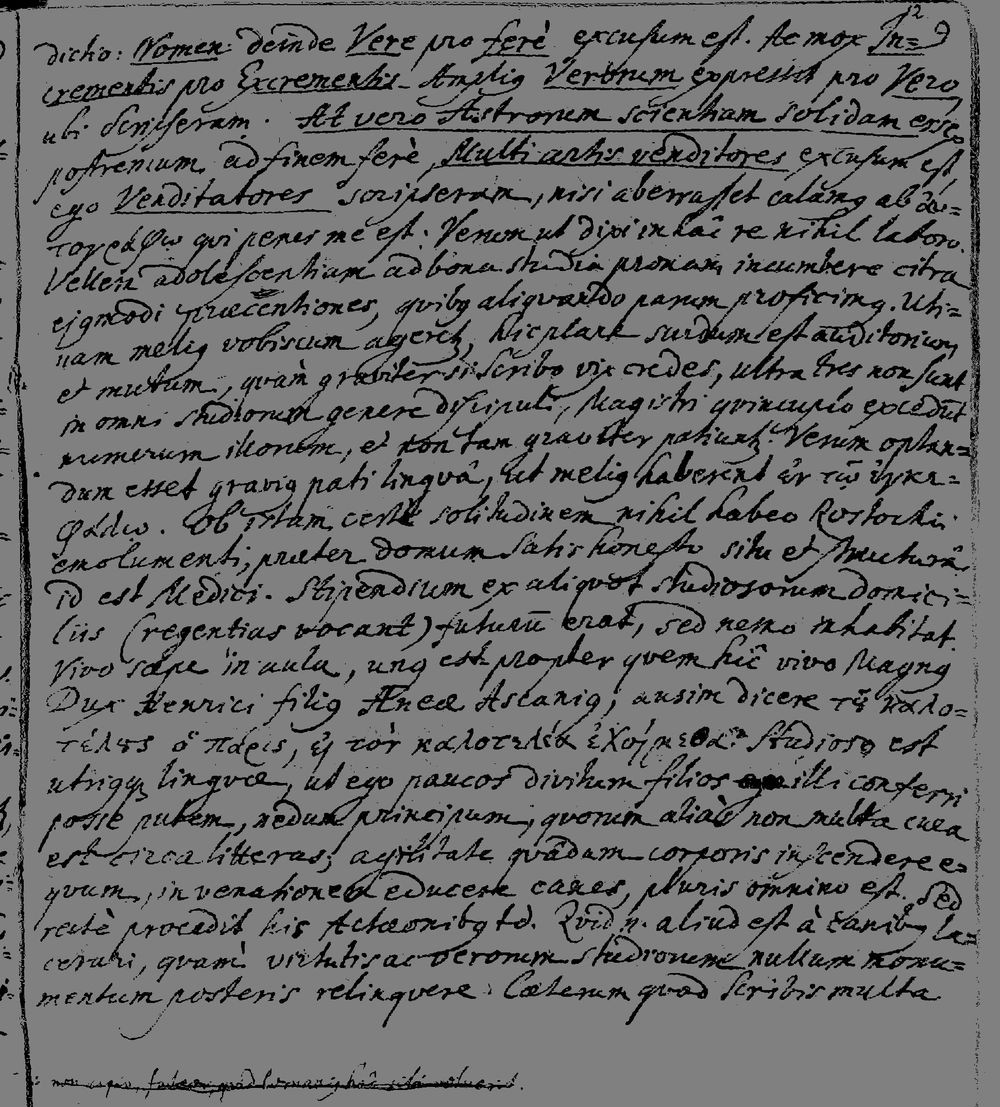 12 9
dicho: Nomen: deinde Vere pro ferè excusum est. Ac mox In=
crementis pro Excrementis. Ampliq Verborum expressit pro Vero
ubi scripseram. At vero Astrorum scientiam solidam esse,
postremum ad finem ferè, Multi artis venditores excusum est
ego Venditatores scripseram, nisi aberrasset calamq ab αυ=
τογράφω qui penes me est. Verum ut dixi in hâc re nihil laboro.
Vellem adolescentiam ad bona studia pronam incumbere citra
ejqmodi præcentiones, quibq aliquando parum proficimq. Uti=
nam meliq vobiscum ageret, hic planè surdum est auditorium
et mutum, quàm graviter si scribo vix credes, ultra tres non sunt
in omni studiorum genere discipuli, Magistri quincuplo excedūt
numerum illorum, et non tam graviter patiunt. Verum optan=
dum esset graviq pati linguâ, ut meliq haberent ἐν τῷ ἐγκε=
φάλω. Ob istam certè solitudinem nihil habeo Rostochii
emolumenti, præter domum satis honesto situ et structurâ,
id est Medici. Stipendium ex aliquot studiosorum domici=
liis (regentias vocant) futurū erat, sed nemo inhabitat.
Vivo sæpe in aula, unq est propter quem hîc vivo Magnq
Dux Henrici filiq Æneæ Ascaniq, ausim dicere τῦ καλο=
τέλυς ὁ πάρις, ἐι τὸν καλοτελέα ἐχοίμεθα. Studiosq est
utriqq linguæ, ut ego paucos divitum filios illi conferri
posse putem, nedum principum, quorum aliàs non multa cura
est circa litteras; agilitate quâdam corporis inscendere e=
quum, in venationem educere canes, pluris omnino est. Sed
rectè procedit his Actæonibq td. Quid n. aliud est à canibq la=
cerari, quàm virtutis ac verorum studiorum nullum monu=
mentum posteris relinquere. Cæterum quod scribis multa